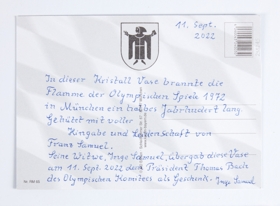 11. Sept.
2022
In dieser Kristall Vase brannte die
Flamme der Olympischen Spiele 1972
in München ein halbes Jahrhundert lang
Gehütet mit voller
Hingabe und Leidenschaft von
Franz Samuel.
Seine Witwe, Inge Samuel, übergab diese Vase
am 11. Sept. 2022 dem Präsident Thomas Bach
des Olympischen Komitees als Geschenk.
Inge Samuel